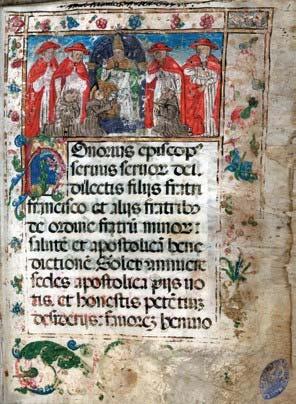 Onorius episcopꝰ
seruus seruor dei
dilectis filijs fratri
francisco et alijs fratribꝰ
de ordine fratrū minor:
salutē et apostolicā bene
dictionē Solet annuere
sedes apostolica pijs uo
tis, et honestis petētiuȝ
desiderijs: fauorez beniuo